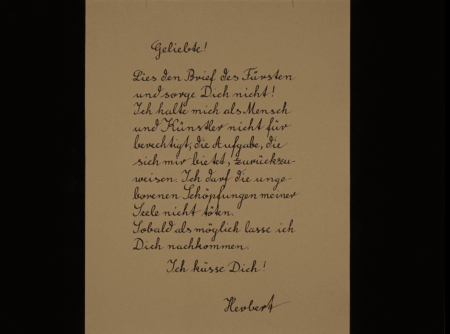 Geliebte!
Lies den Brief des Fürsten
und sorge Dich nicht!
Ich halte mich als Mensch
und Künstler nicht für
berechtigt, die Aufgabe, die
sich mir bietet, zurückzu-
weisen. Ich darf die unge-
borenen Schöpfungen meiner
Seele nicht töten.
Sobald als möglich lasse ich
Dich nachkommen.
Ich küsse Dich!
Herbert